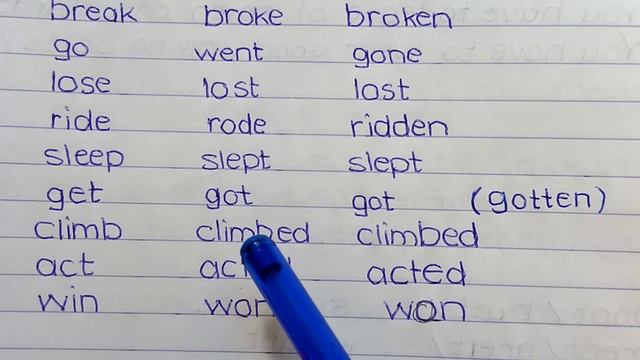 break broke broken
go went gone
lose lost lost
ride rode ridden
sleep slept slept
get got got (gotten)
climb climbed climbed
act acted
win won